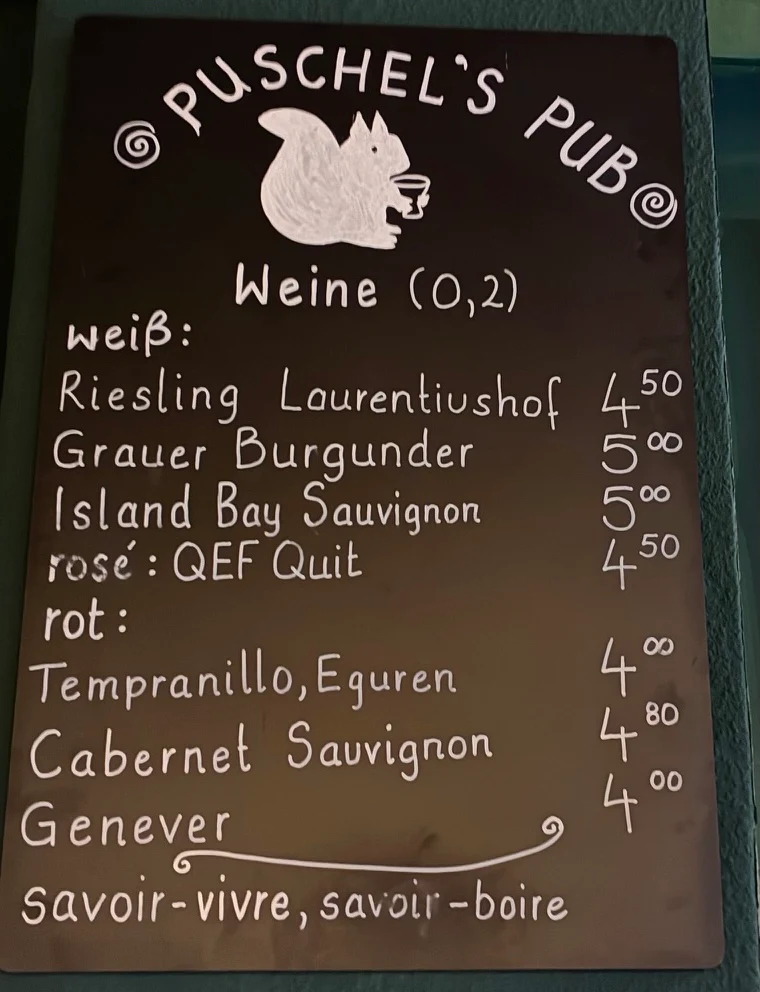 PUSCHEL'S PUB
Weine (0,2)
weiß:
Riesling Laurentiushof 4 50
Grauer Burgunder 5 00
Island Bay Sauvignon 5 00
rosé: QEF Quit 4 50
rot:
Tempranillo, Eguren 4 00
Cabernet Sauvignon 4 80
Genever 4 00
savoir-vivre, savoir-boire